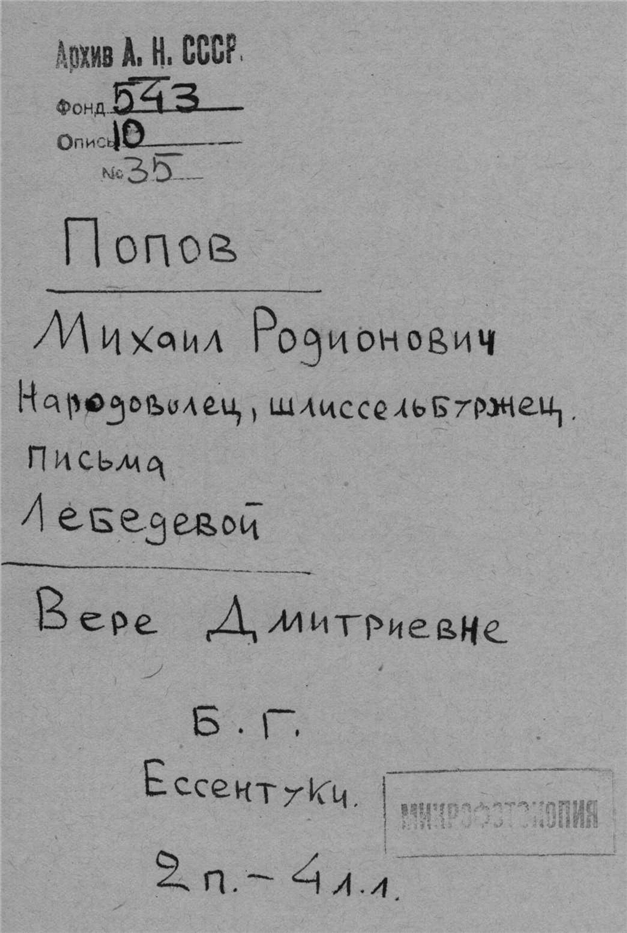 Архив А. Н. СССР.
Фонд 543
Опись 10
№ 35
Попов
Михаил Родионович
Народоволец, шлиссельбуржец.
письма
Лебедевой
Вере Дмитриевне
Б. Г.
Ессентуки.
МИКРОФОТОКОПИЯ
2 п. – 4 л.л.